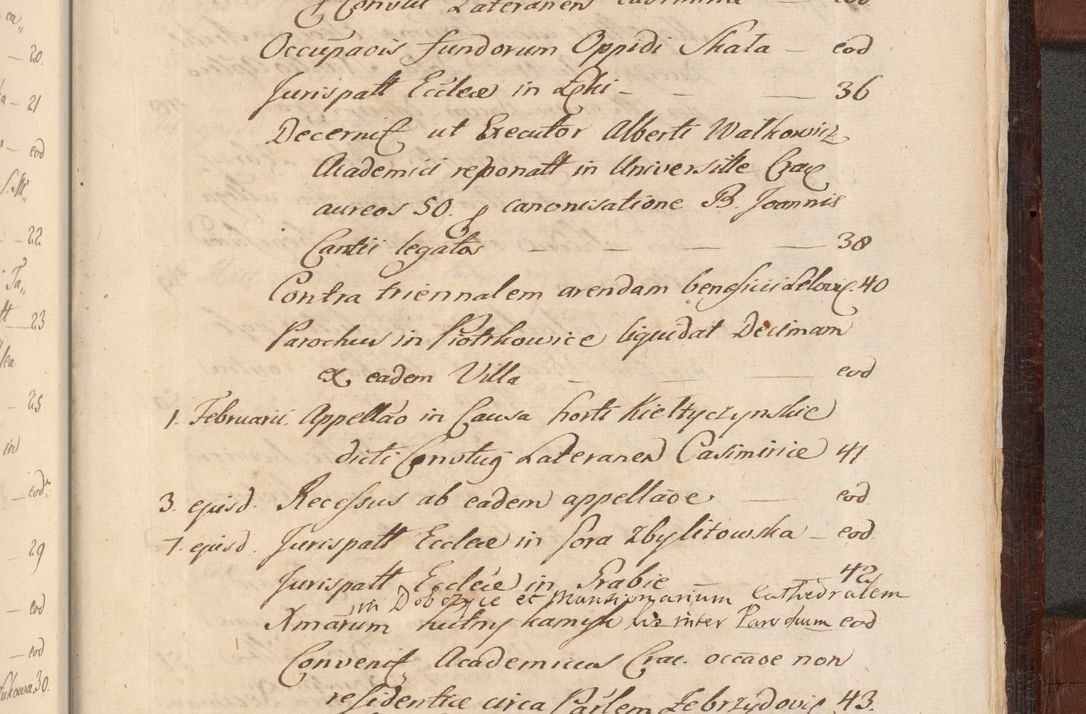 Occupaōis fundorum Oppidi Skała — eod
Jurispatt Eccleæ in Lęki — — — 36
Decernit ut Executor Alberti Watkowicz
Academici reponatt in Universitte Crac
aureos 50. p canonisatione B. Joannis
Cantii legatos — — — 38
Contra triennalem arendam beneficii Lelovic. 40
Parochus in Piotrkowice liquidat Decimam
ex eadem Villa — — — eod
1. Februarii. Appellāo in Causa horti Kieltyczynskie
dicti Lateranen Casimiriæ 41
3. ejusd. Recessus ab eadem appellāoe. — eod
7. ejusd. Jurispatt Eccleæ in Gora Zbylitowska — eod
Jurispatt Eccleæ in Grabie 42
in Dobczyce et Mansionarium Cathedralem
Xmarum lis inter Parochum eod
Academicus Crac. occāoe non
residentiæ circa Zebrzydovic 43.
20.
21
eod
22
23
25
in
eod.
29
eod
eod
30.